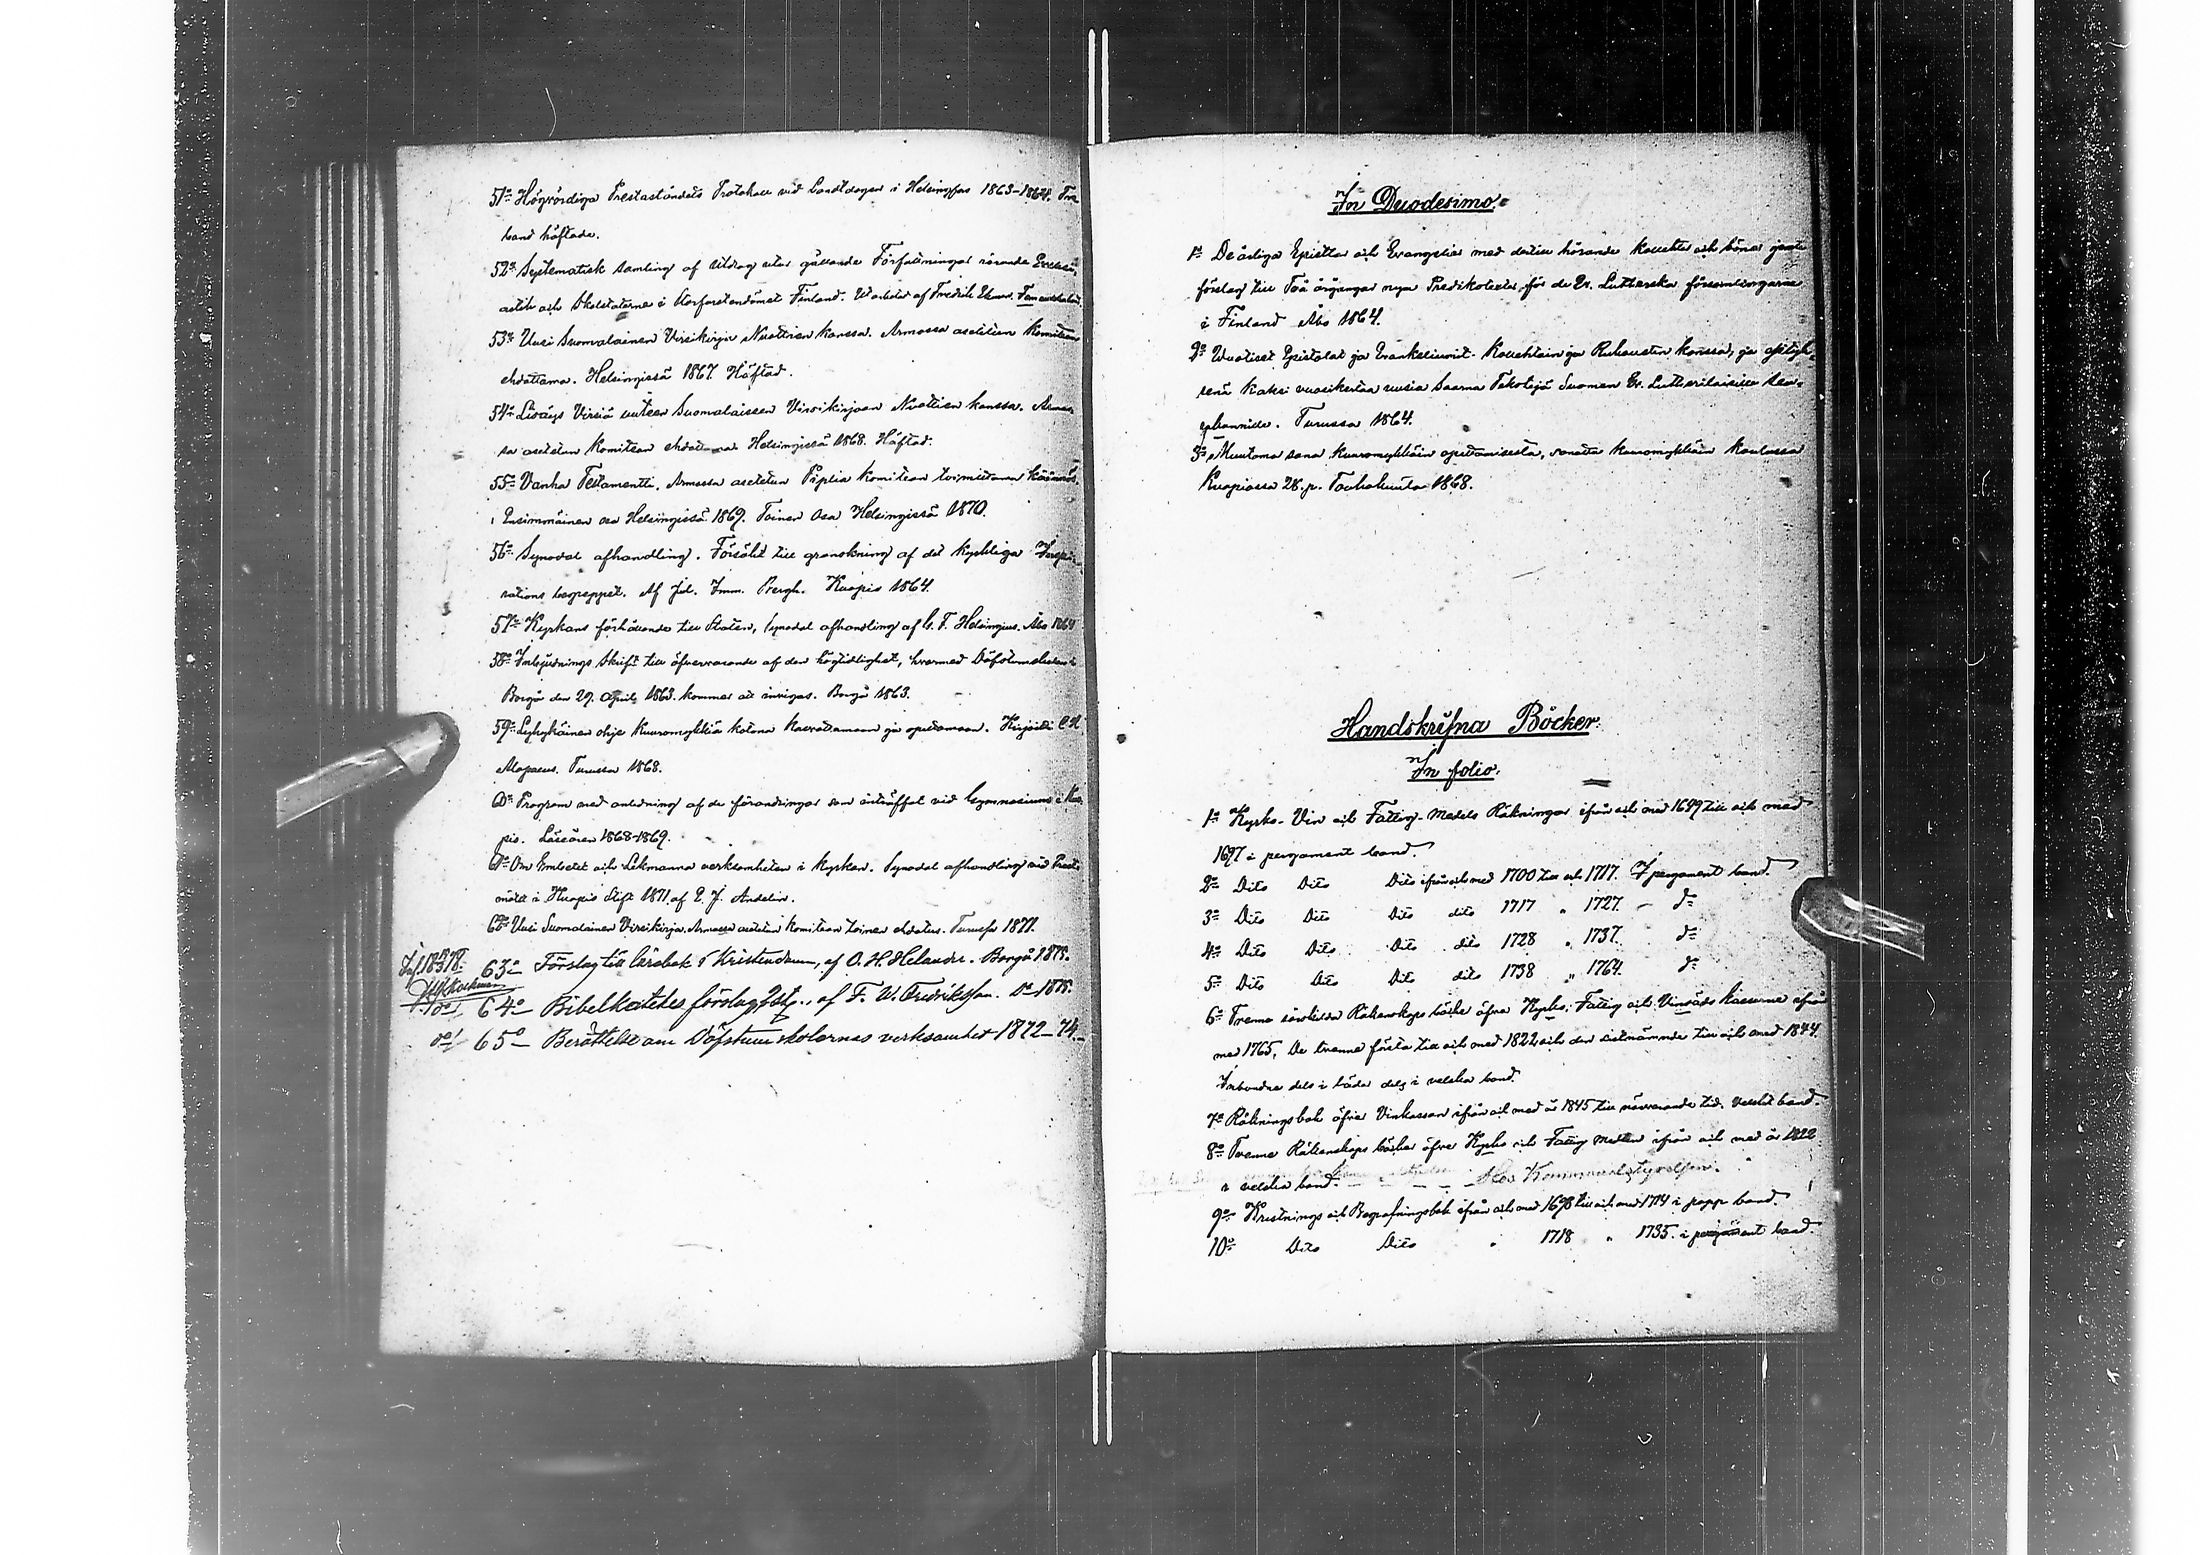 51:o Högvördiga Prestaståndets Protokoll vid Landtdagen i Helsingfors 1863-1864. Tre
band häftade.
52:o Systematisk samling af utdrag utur gällande Författningar rörande Ecclesi-
astik och Skolstaterna i Storfurstendömet Finland. Utarbetat af Fredrik
53:o Uusi Suomalainen Virsikirja Nuottien kanssa. Armossa asetetun Komitean
ehdottama. Helsingissä 1867. Häftad.
54:o Lisäys Virsiä uuteen Suomalaiseen Virsikirjaan Nuottien kanssa. Armos-
sa asetetun Komitean ehdottama Helsingissä 1868. Häftad.
55:o Vanha Testamentti. Armossa asetetun Piplia Komitean toimittama Käännös.
Ensimmäinen osa Helsingissä 1869. Toinen Osa Helsingissä 1870.
56:o Synodal afhandling. Försökt till granskning af det kyrkliga Inspi-
rations begreppet. Af Jul. Imm. Bergh. Kuopio 1864.
57:o Kyrkans förhållande till Staten, synodal afhandling af G. F. Helsingius. Åbo 1864
58:o Inbjudnings Skrift till öfvervarande af den högtidlighet, hvarmed Döfstumskolan i
Borgå den 29. April 1863. kommer att invigas. Borgå 1863.
59:o Lyhykäinen ohje Kuuromykkiä kotona kasvattamaan ja opettamaan. Kirjoitti C. H.
Alopaeus. Turussa 1868.
Program med anledning af de förändringar som inträffat vid Gymnasium i Kuo-
pio. Läseåren 1868-1869.
Om Embetet och Lekmanna verksamheten i kyrkan. Synodal afhandling vid Prest-
mötet i Kuopio Stift 1871 af E. J. Andelin.
62:o Uusi Suomalainen Virsikirja. Armossa asetetun Komitean toinen ehdotus. Turussa 1871.
63:o Förslag till lärobok i Kristendom, af O. H. Helander. Borgå 1878.
64:o Bibelkatekes förslag af F. W. Fredriksson. D:o 1875.
d:o 65:o Berättelse om Döfstumskolornas verksamhet 1872-74.
In Duodesimo.
1:o De årliga Epistlar och Evangelier med dertill hörande kollekter och böner jemte
förslag till Två årgångar nya Predikotexter för de Ev. Lutherska församlingarne
i Finland Åbo 1864.
2:o Wuotiset Epistolat ja Evankeliumit Kollehtain ja Rukousten kanssa, ja
senä kaksi vuosikertaa uusia Saarna Tekstejä Suomen Ev. Lutherilaisille Seu-
rakunnille. Turussa 1864.
3:o Muutama sana Kuuromykkäin opettamisesta, sanottu kuuromykkäin koulussa
Kuopiossa 28. p. Toukokuuta 1868.
Handskrifna Böcker.
In folio.
1:o Kyrko- Vin och Fattig- Medels Räkningar ifrån och med 1679 till och med
1697 i pergament band.
2:o Dito Dito Dito ifrån och med 1700 till och 1717. I pergament band.
3:o Dito Dito Dito dito 1717 " 1727. - d:o
4:o Dito Dito Dito dito 1728 " 1737. d:o
5:o Dito Dito Dito dito 1738 " 1764. d:o
6:o Trenne särskilda Räkenskaps böcker öfver Kyrko- Fattig och Vinsäds kassorne ifrån
med 1765. De tvenne första till och med 1822 och den sistnämnde till och med 1844.
Inbundna dels i läder dels i velska band.
7:o Räknings bok öfver Vinkassan ifrån och med år 1845 till närvarande tid. Velskt band.
8:o Tvenne Räkenskaps böcker öfver Kyrko och Fattig Medlen ifrån och med år 1822
i velska band. Hos Kommunalstyrelsen.
9:o Kristnings och Begrafningsbok ifrån och med 1698 till och med 1714 i papp band.
10:o Dito Dito " 1718 " 1735. i pergament band.